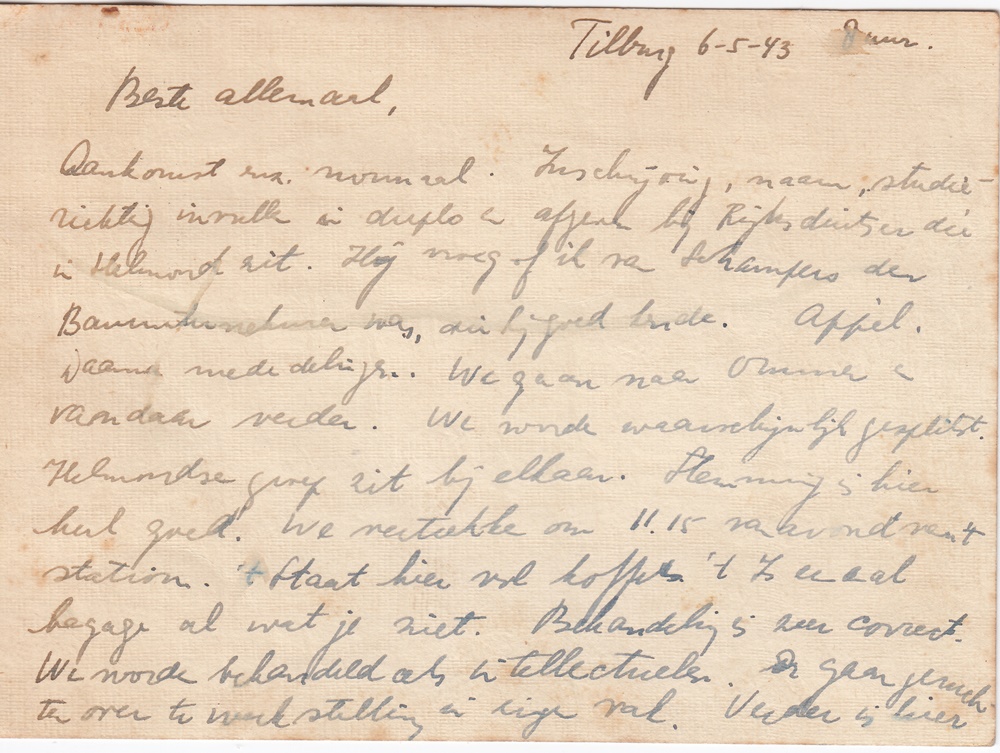 Tilburg 6-5-43 8 uur.
Beste allemaal,
Aankomst enz. normaal. Inschrijving, naam, studie-
richting invullen in duplo en afgeven bij Rijksduitser die
in Helmond zit. Hij vroeg of ik van Schampers den
Bauunternehmer was, die hij goed kende. Appèl.
Daarna mededelingen. We gaan naar Ommen en
vandaar verder. We worden waarschijnlijk gesplitst.
Helmondse groep zit bij elkaar. Stemming is hier
heel goed. We vertrekken om 11.15 vanavond van 't
station. 't Staat hier vol koffers 't Is een al
bagage al wat je ziet. Behandeling is zeer correct.
We worden behandeld als intellectuelen. Er gaan geruch-
ten over tewerkstelling in eigen vak. Verder is hier